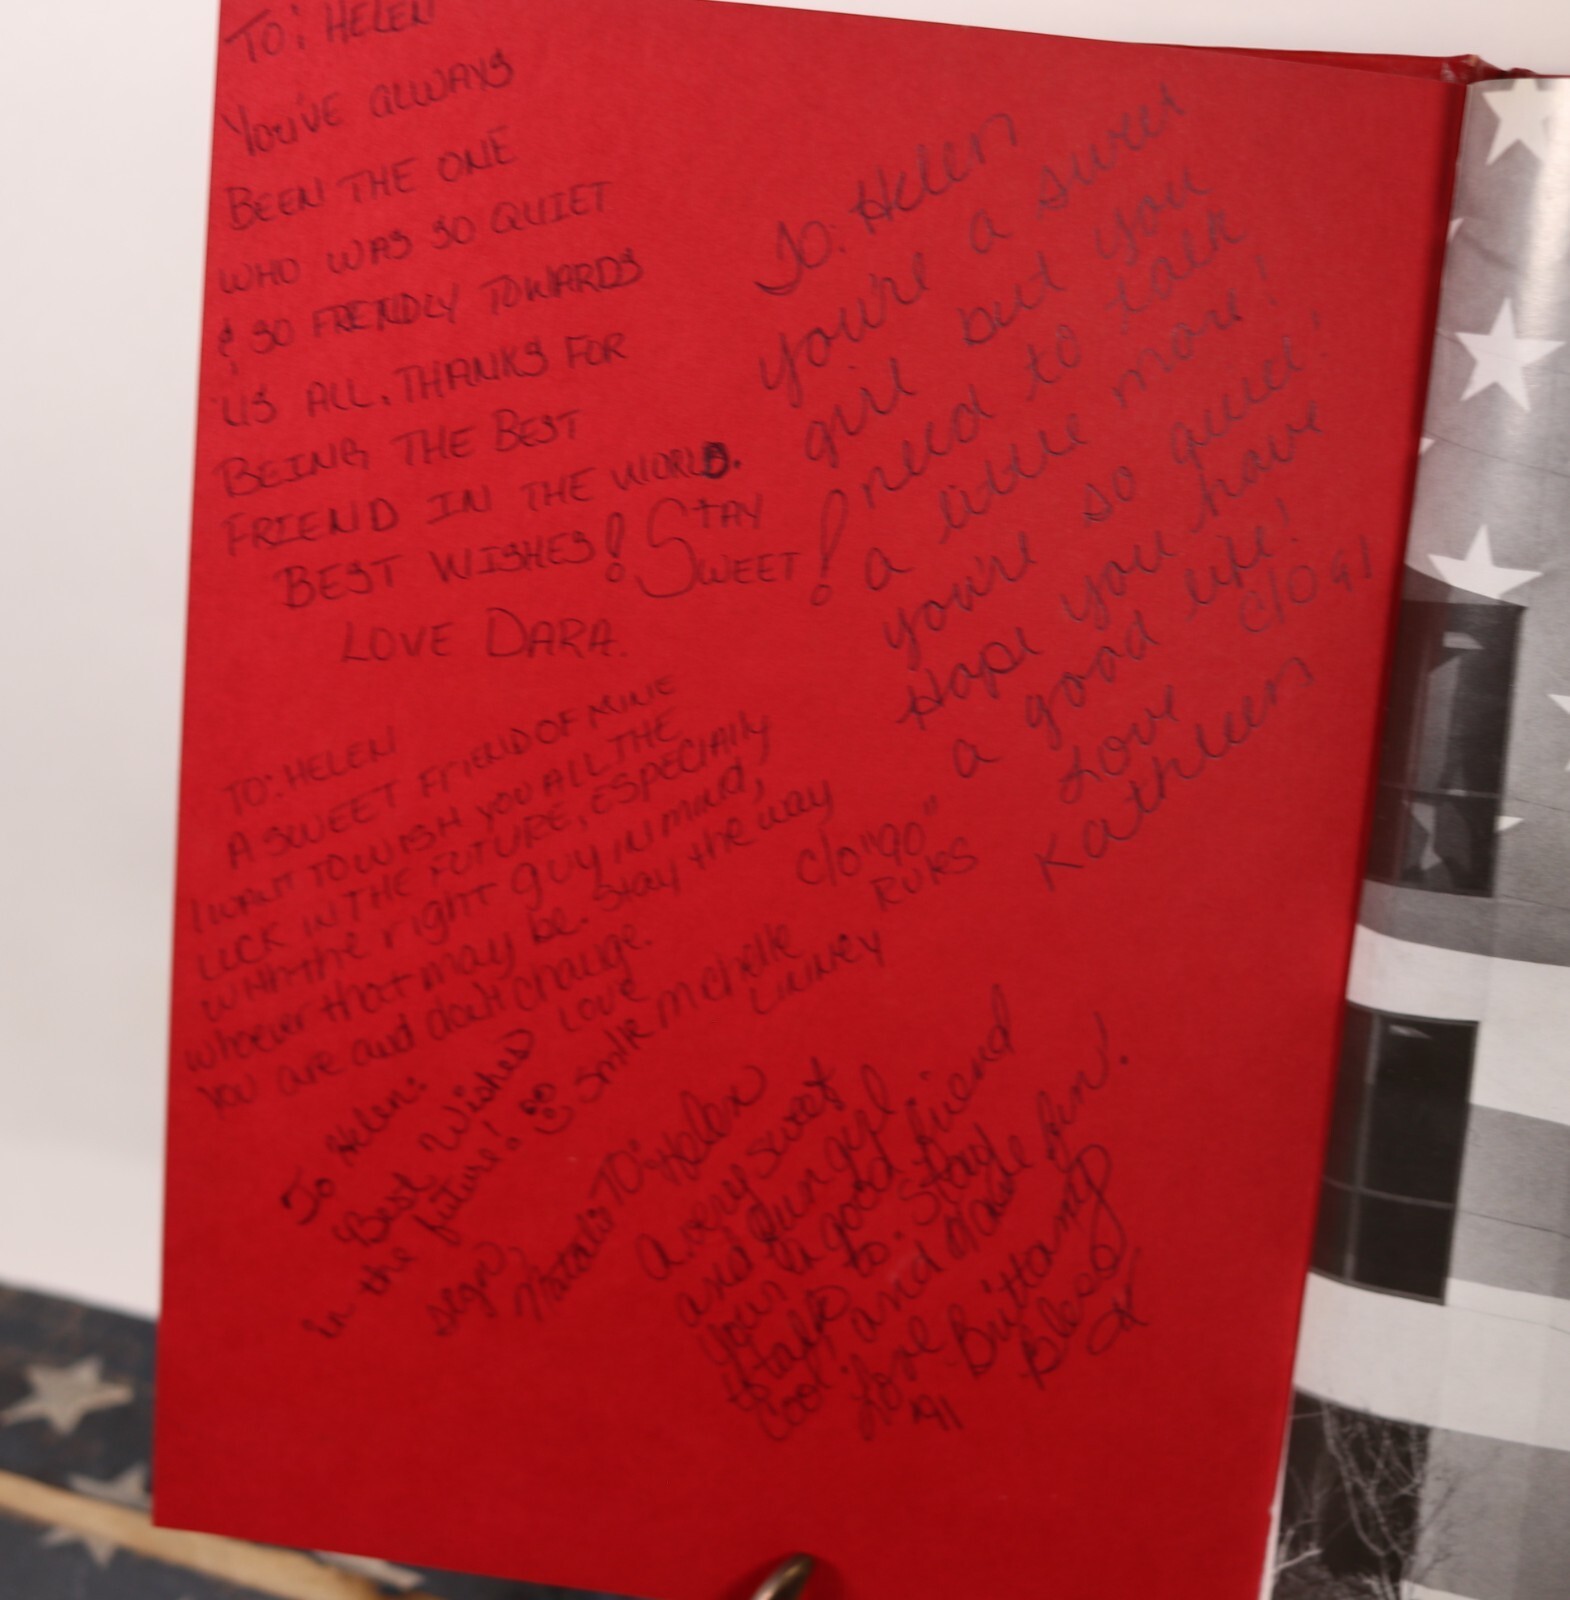 TO: HELEN
YOU'VE ALWAYS
BEEN THE ONE
WHO WAS SO QUIET
& SO FRENDLY TOWARDS
US ALL. THANKS FOR
BEING THE BEST
FRIEND IN THE WORLD.
BEST WISHES! STAY
SWEET!
LOVE DARA.
To: Helen
you're a sweet
girl but you
need to talk
a little more!
you're so quiet!
Hope you have
a good life!
Love C/O 91
Kathleen
TO: HELEN
A SWEET FRIEND OF MINE
I WANT TO WISH YOU ALL THE
LUCK IN THE FUTURE, ESPECIALLY
WITH the right guy in mind,
whoever that may be. Stay the way
you are and don't change.
Love
Michelle
C/O "90"
RUKS
To Helen:
Best Wishes
in the future!
Smile
To: Helen
A very sweet
and fun gyl
your a good friend
to talk to. Stay
cool and have fun!
Love Brittany
91